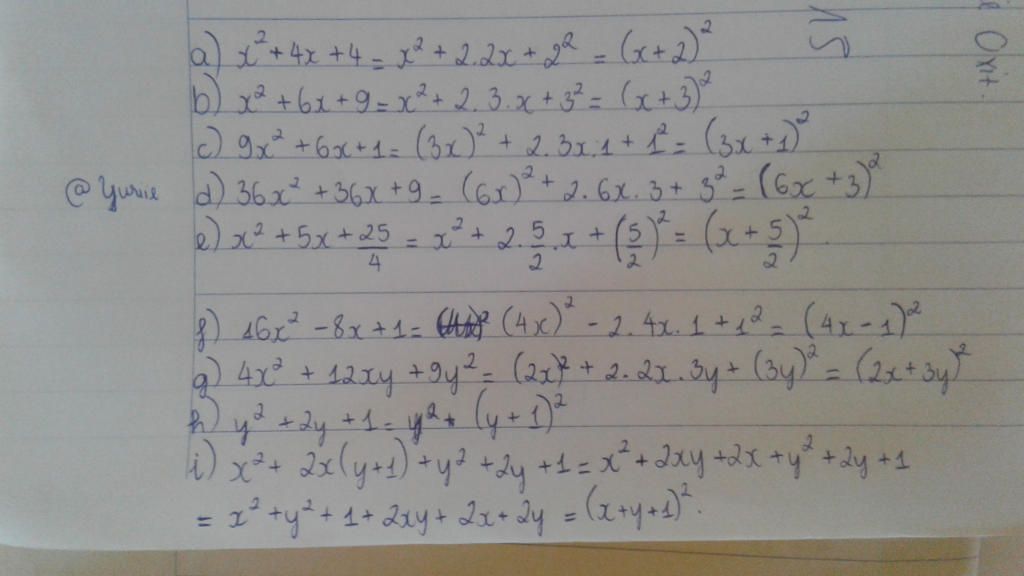 a) x² + 4x + 4 = x² + 2.2x + 2² = (x + 2)²
b) x² + 6x + 9 = x² + 2.3.x + 3² = (x + 3)²
c) 9x² + 6x + 1 = (3x)² + 2.3x.1 + 1² = (3x + 1)²
@ Yuriie
d) 36x² + 36x + 9 = (6x)² + 2.6x.3 + 3² = (6x + 3)²
e) x² + 5x + 25/4 = x² + 2.5/2.x + (5/2)² = (x + 5/2)².
f) 16x² - 8x + 1 = (4x)² - 2.4x.1 + 1² = (4x - 1)²
g) 4x² + 12xy + 9y² = (2x)² + 2.2x.3y + (3y)² = (2x + 3y)²
h) y² + 2y + 1 = (y + 1)²
i) x² + 2x(y+1) + y² + 2y + 1 = x² + 2xy + 2x + y² + 2y + 1
= x² + y² + 1 + 2xy + 2x + 2y = (x+y+1)².